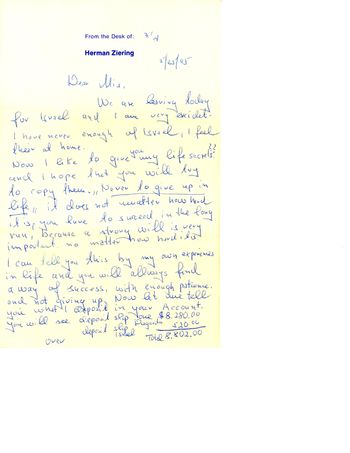 From the Desk of:
Herman Ziering
Dear Mis.
We are leaving today
for Israel and I am very exidet.
I have never enough of Israel, I feel
there at home.
Now I like to give you my life secrets
and I hope that you will try
to copy them. "Never to give up in
life" it does not matter how hard
it is, you have to succeed in the long
run, because a strong will is very
important no matter how hard it is
I can tell you this by my own experiences
in life and you will allways find
a way of success, with enough patience.
and not giving up. Now let me tell
you what I deposit in your Account.
You will see deposit slip one $ 8.280.00
deposit slip 520.00
Israel Total 8.802.00
over